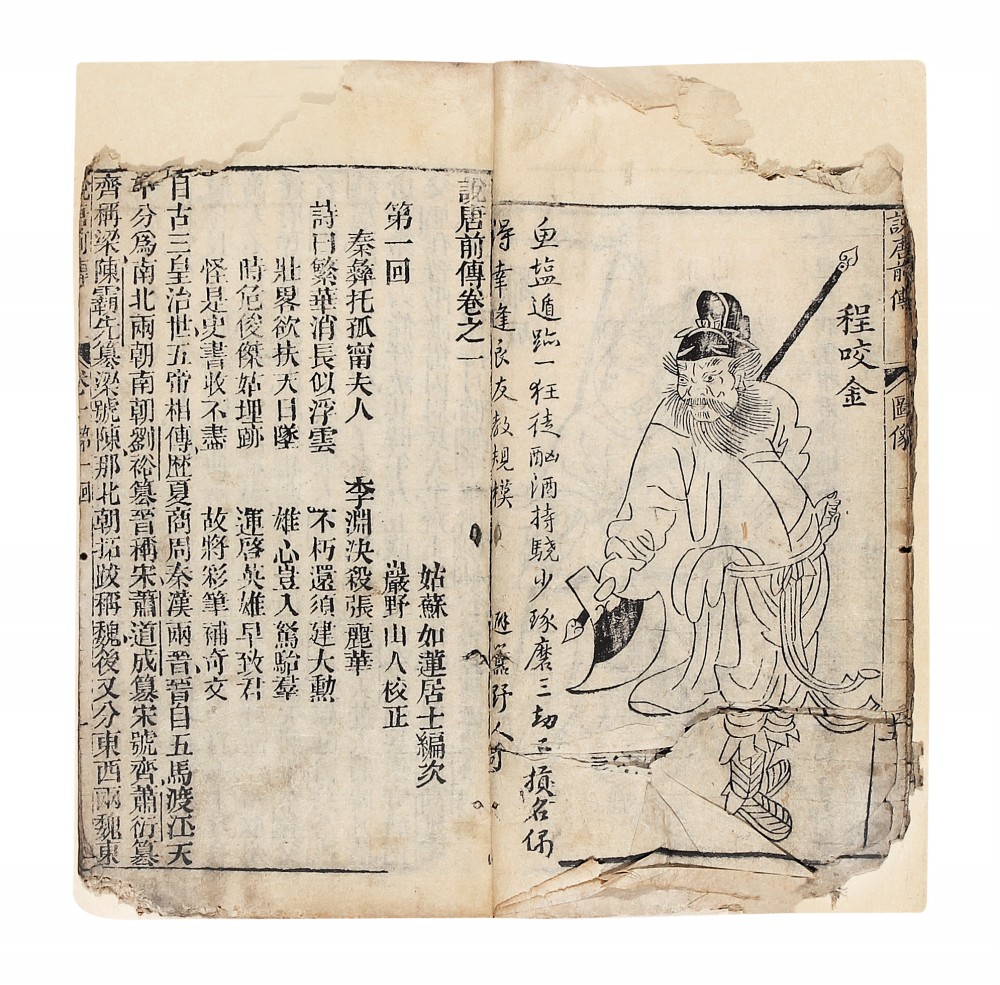 說唐前傳
圖像
程咬金
魚塩遁跡一狂徒酗酒持驍少琢磨三劫正損名偶
得幸逢良友教規模 野人
說唐前傳卷之一
姑蘇如蓮居士編次
第一回 巖野山人校正
秦彝托孤甯夫人 李淵決殺張麗華
詩曰繁華消長似浮雲 不朽還須建大勳
壯畧欲扶天日墜 雄心豈入駑駘羣
時危俊傑姑埋跡 運啓英雄早致君
怪是史書收不盡 故將彩筆補奇文
自古三皇治世五帝相傳歷夏商周秦漢兩晉晉自五馬渡江天
下分爲南北兩朝南朝劉裕纂晉稱宋蕭道成纂宋號齊蕭衍纂
齊稱梁陳霸先纂梁號陳那北朝拓跋稱魏後又分東西兩魏東
說唐前傳 卷一第一回